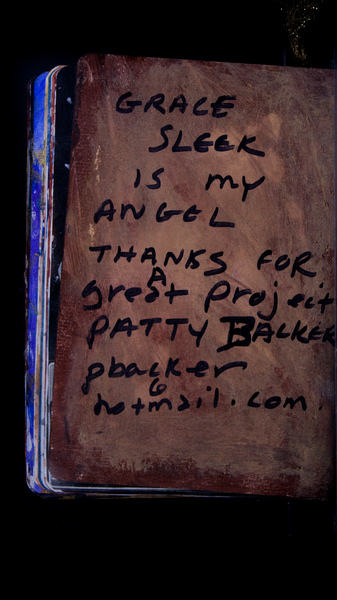 GRACE
SLEEK
IS MY
ANGEL
THANKS FOR
A
great project
PATTY BACKER
pbacker
@
hotmail.com.